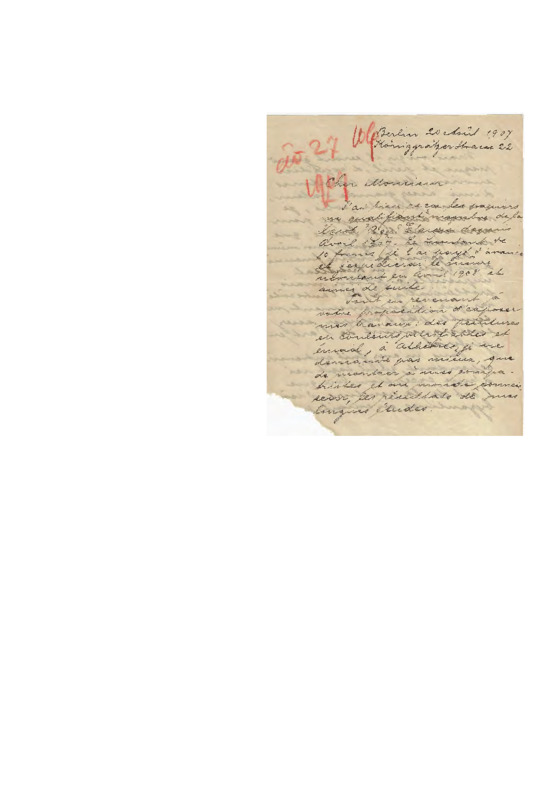 Berlin 20 Août 1907
Königgrätzer Strasse 22
27
Cher Monsieur
J'ai bien reçu les papiers
me qualifiant membre de la
Avril 1907. Le montant de
10 francs je l'ai payé d'avance
et
revenant en Avril 1908 et
ainsi de suite.
Tout en revenant à
votre proposition d'exposer
mes travaux: des peintures
en couleurs et
émail, à Athènes, je ne
demande pas mieux, que
de montrer à mes compa-
triotes et au monde connai-
sseur, les résultats de mes
longues études.